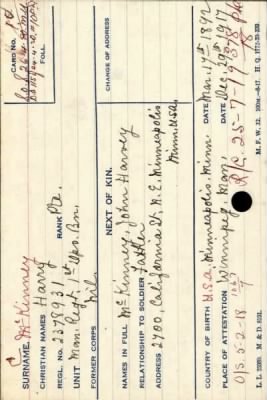 CARD NO.
FOLL.
SURNAME, McKinney
CHRISTIAN NAMES Harry
REGL. NO. 2378931 RANK Pte.
UNIT Man. Regt. 1st Dpo. Bn.
FORMER CORPS Nil.
NEXT OF KIN.
CHANGE OF ADDRESS
NAMES IN FULL McKinney, John Harvey
RELATIONSHIP TO SOLDIER Father
ADDRESS 2700, California St. N.E. Minneapolis
Minn. U.S.A.
COUNTRY OF BIRTH U.S.A. Minneapolis. Minn. DATE Mar. 17th 1892
PLACE OF ATTESTATION Winnipeg, Man. DATE Dec. 29th 1917
O/S 5-2-18
R/C. 25-7-19
M. F. W. 22.